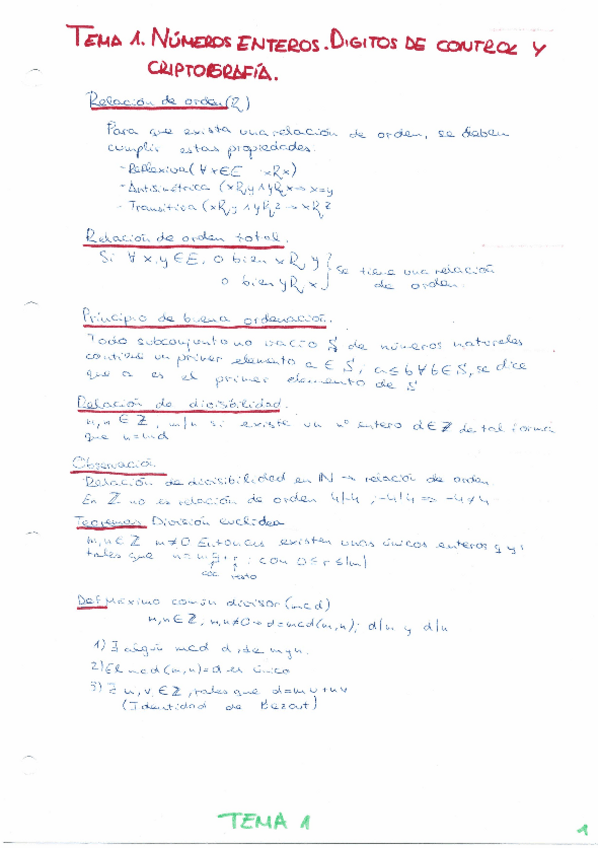 TEMA 1. NÚMEROS ENTEROS. DIGITOS DE CONTROL Y
CRIPTOGRAFÍA.
Relación de orden (R)
Para que exista una relación de orden, se deben
cumplir estas propiedades.
- Reflexiva (∀x∈E xRx)
- Antisimétrica (xRy ∧ yRx → x=y
- Transitiva (xRy ∧ yRz → xRz
Relación de orden total.
Si ∀ x,y ∈ E, o bien x R y } se tiene una relación
o bien y R x } de orden.
Principio de buena ordenación.
Todo subconjunto no vacío S de números naturales
contiene un primer elemento a ∈ S, a ≤ b ∀ b ∈ S, se dice
que a es el primer elemento de S
Relación de divisibilidad.
m,n ∈ Z, m/n si existe un nº entero d ∈ Z de tal forma
que n=m·d
Observación
Relación de divisibilidad en N → relación de orden.
En Z no es relación de orden 4/-4 ; -4/4 => -4≠4
Teorema: División euclidea
m,n ∈ Z m≠0 Entonces existen unos únicos enteros q y r
tales que n = m q + r ; con 0 ≤ r ≤ |m|
coc resto
Def Máximo común divisor (mcd)
m,n ∈ Z, m,n≠0 → d=mcd(m,n); d/m y d/n
1) ∃ algún mcd d, de m y n.
2) El mcd (m,n)=d es único
3) ∃ u,v ∈ Z, tales que d=mu+nv
(Identidad de Bezout)
TEMA 1
1